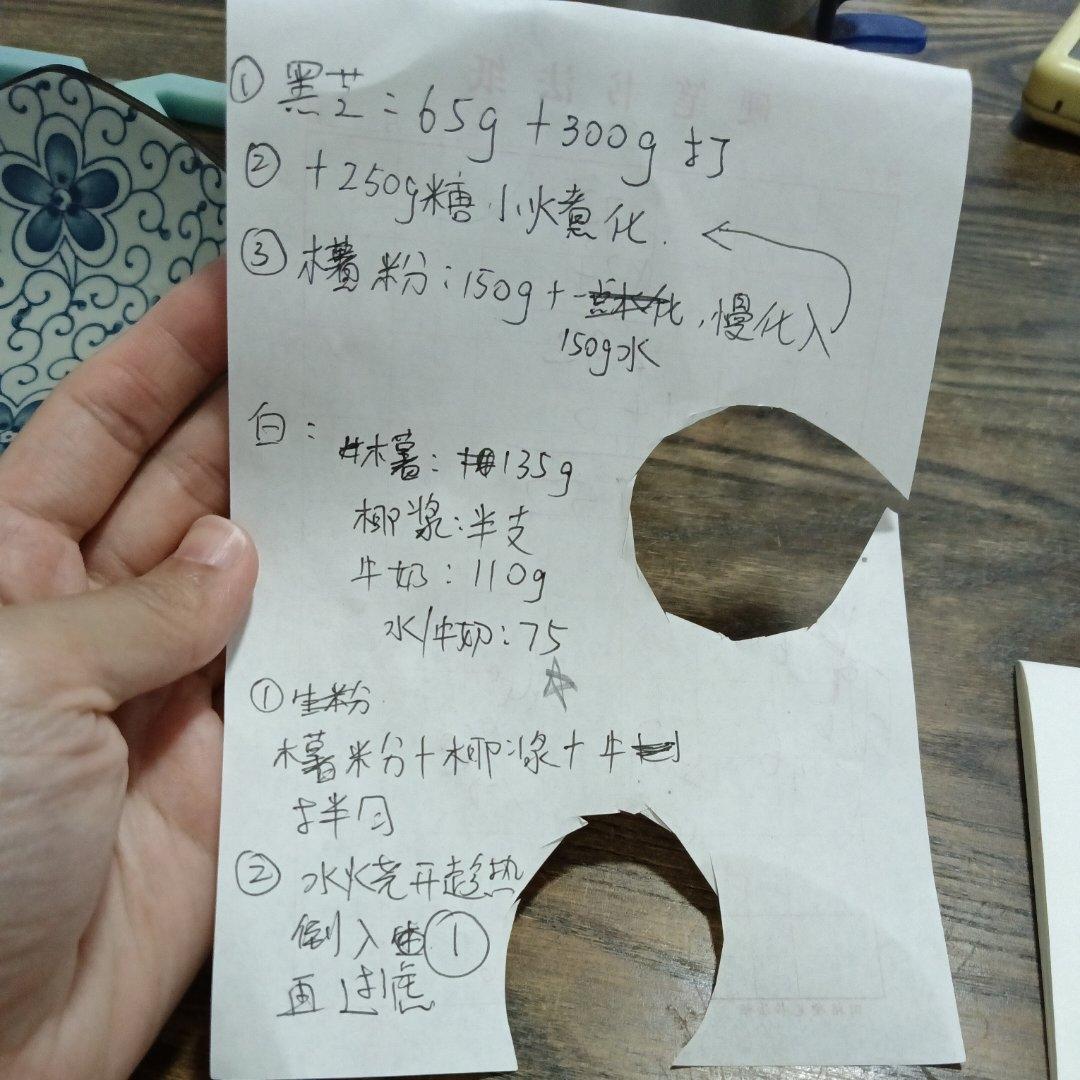 ① 黑芝：65g +300g 打
② +250g糖 小火煮化.
③ 木薯粉：150g + , 慢化入
150g水
白：
木薯：135g
椰浆：半支
牛奶：110g
水/牛奶：75
① 生粉
木薯粉+椰浆+牛
拌匀
② 水烧开趁热
倒入①
再过滤
硬笔书法纸